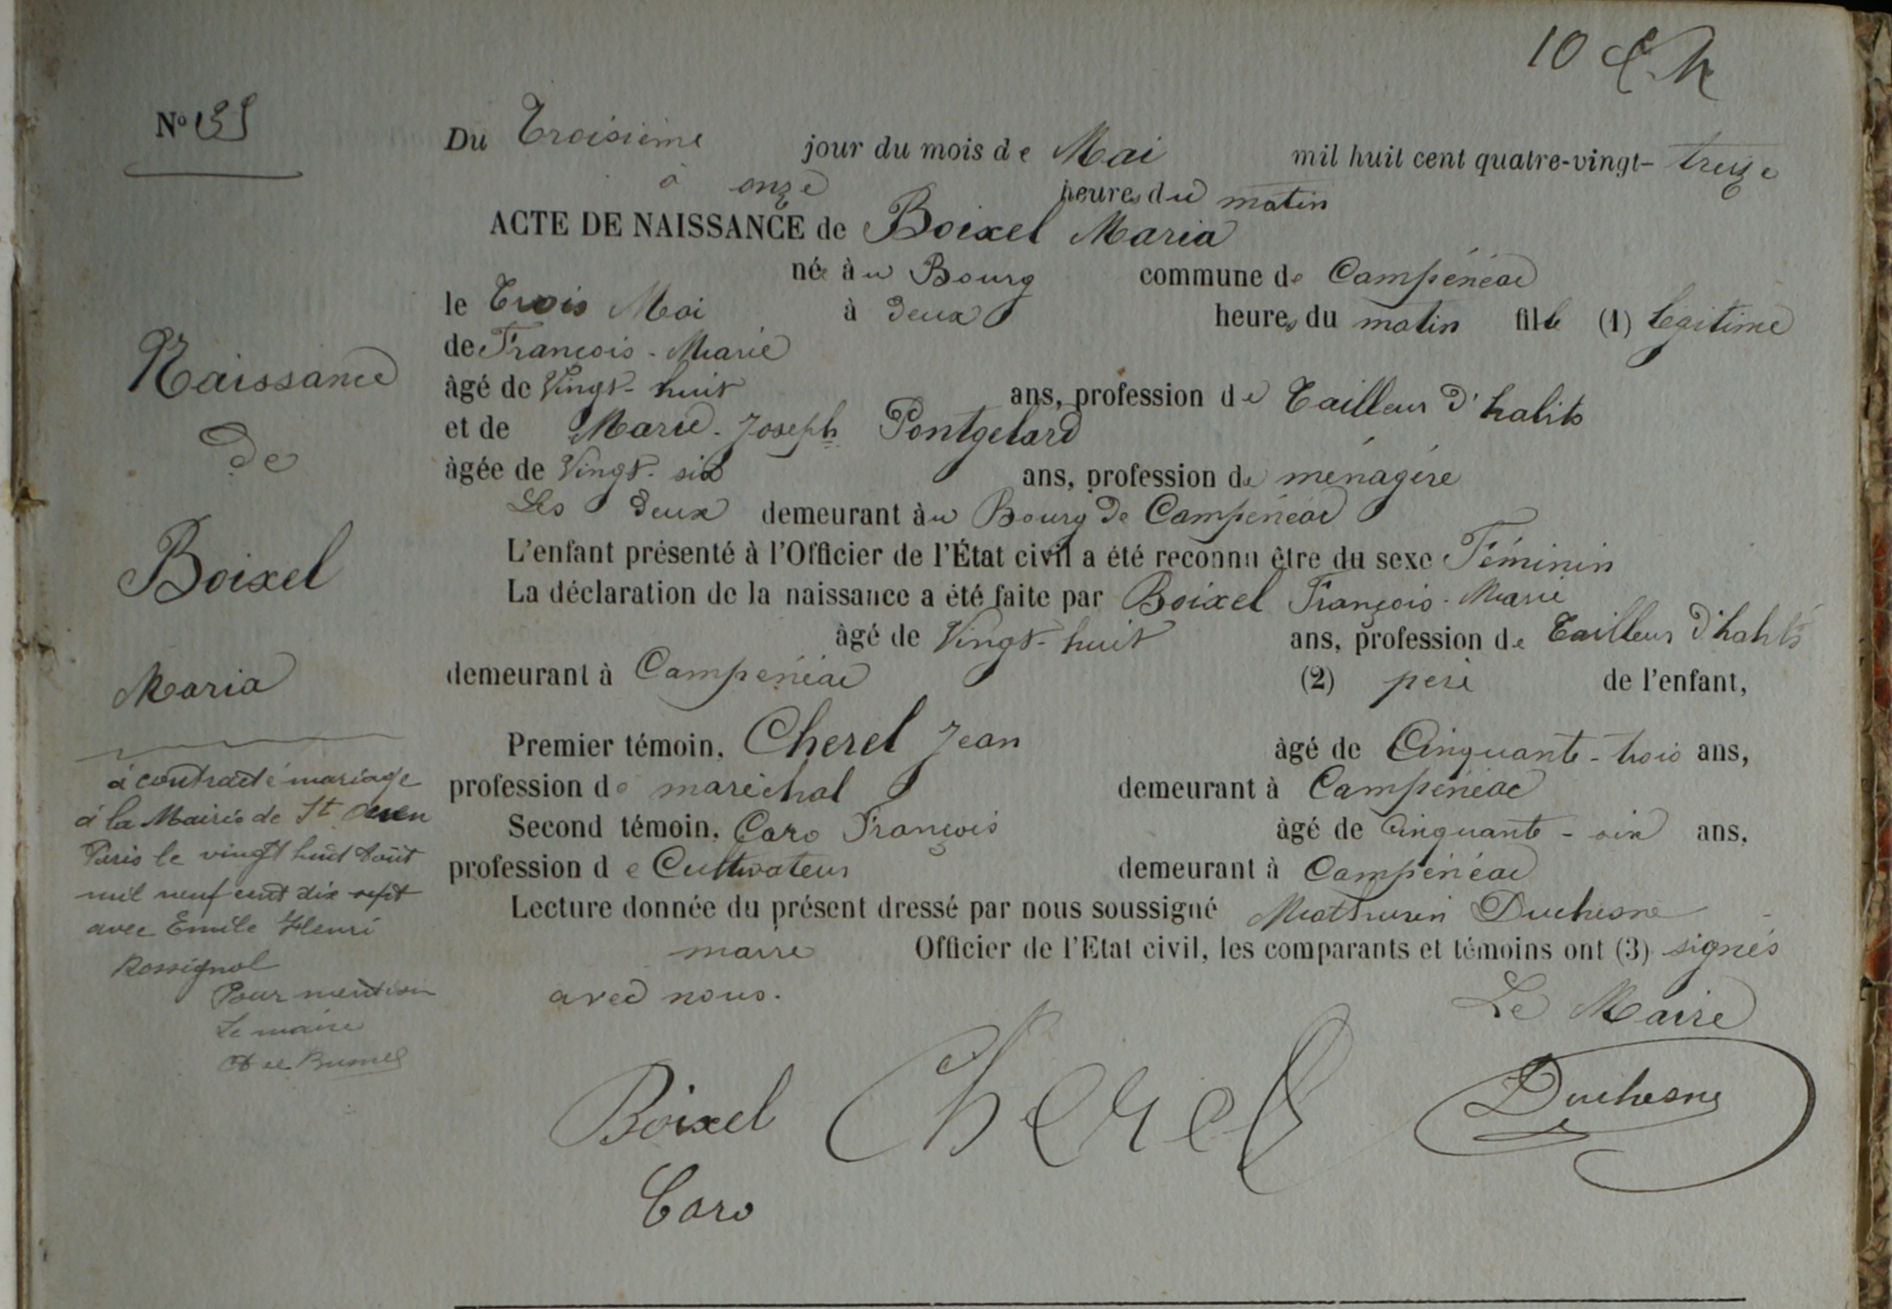 10
N° 35
Du Troisième jour du mois de Mai mil huit cent quatre-vingt- treize
à onze heures du matin
ACTE DE NAISSANCE de Boixel Maria
née au Bourg commune de Campénéac
le Trois Mai à deux heures du matin fille (1) légitime
de François-Marie
âgé de Vingt-huit ans, profession de Tailleur d'habits
et de Marie-Joseph Pontgelard
âgée de Vingt-six ans, profession de ménagère
Les deux demeurant au Bourg de Campénéac
L'enfant présenté à l'Officier de l'État civil a été reconnu être du sexe Féminin
La déclaration de la naissance a été faite par Boixel François-Marie
âgé de Vingt-huit ans, profession de Tailleur d'habits
demeurant à Campénéac (2) père de l'enfant,
Premier témoin, Cherel Jean âgé de Cinquante-trois ans,
profession de maréchal demeurant à Campénéac
Second témoin, Caro François âgé de Cinquante-six ans,
profession de Cultivateur demeurant à Campénéac
Lecture donnée du présent dressé par nous soussigné Mathurin Duchesne
maire Officier de l'Etat civil, les comparants et témoins ont (3) signés
avec nous.
Le Maire
Boixel Cherel Duchesne
Caro
Naissance
de
Boixel
Maria
a contracté mariage
à la Mairie de St Ouen
Paris le vingt huit Août
mil neuf cent dix sept
avec Emile Henri
Rossignol
Pour mention
Le maire